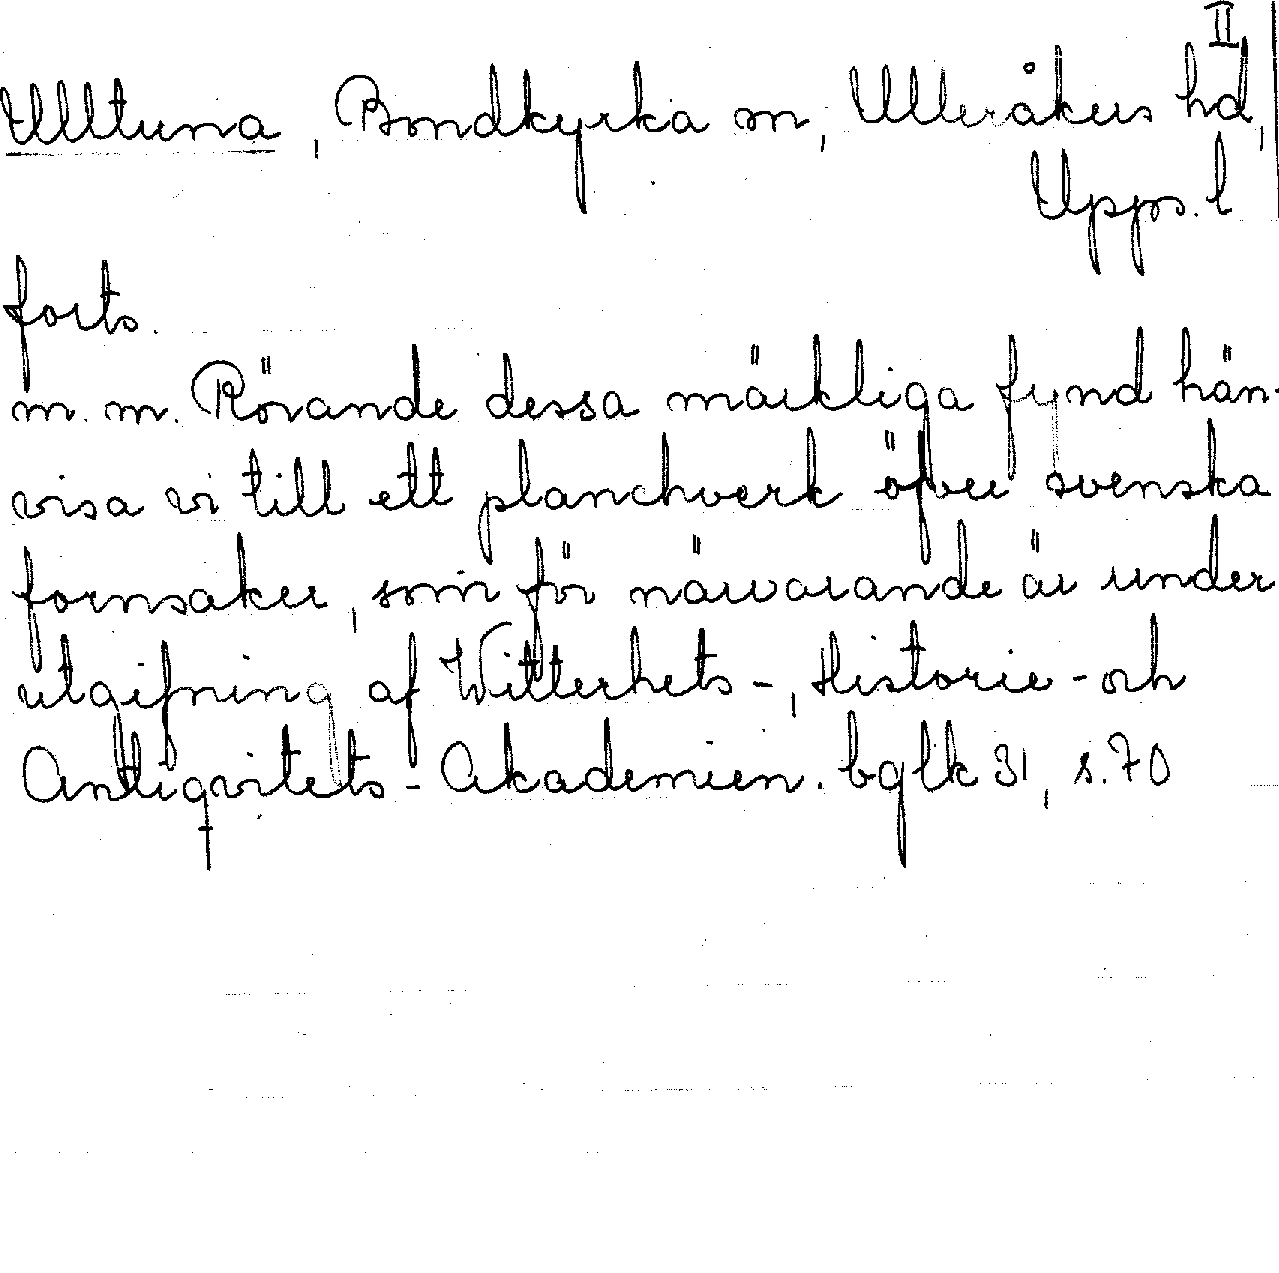 II
Ulltuna, Bondkyrka sn, Ulleråkers hd,
Upps. l
forts.
m. m. Rörande dessa märkliga fynd hän-
visa vi till ett planchverk öfver svenska
fornsaker, som för närvarande är under
utgifning af Witterhets-, Historie- och
Antiqvitets-Akademien. bglk 31, s. 70